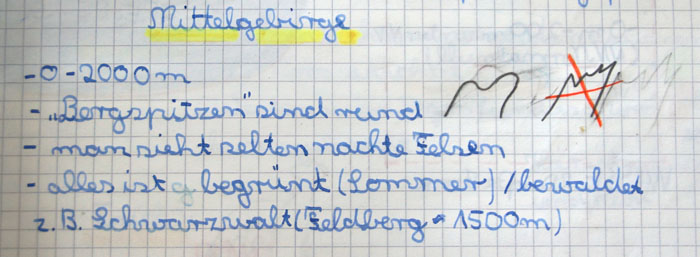 Mittelgebirge
- 0 - 2000 m
- „Bergspitzen" sind rund
- man sieht selten nachte Felsen
- alles ist begrünt (Sommer) / bewaldet
z. B. Schwarzwalt (Feldberg 1500 m)